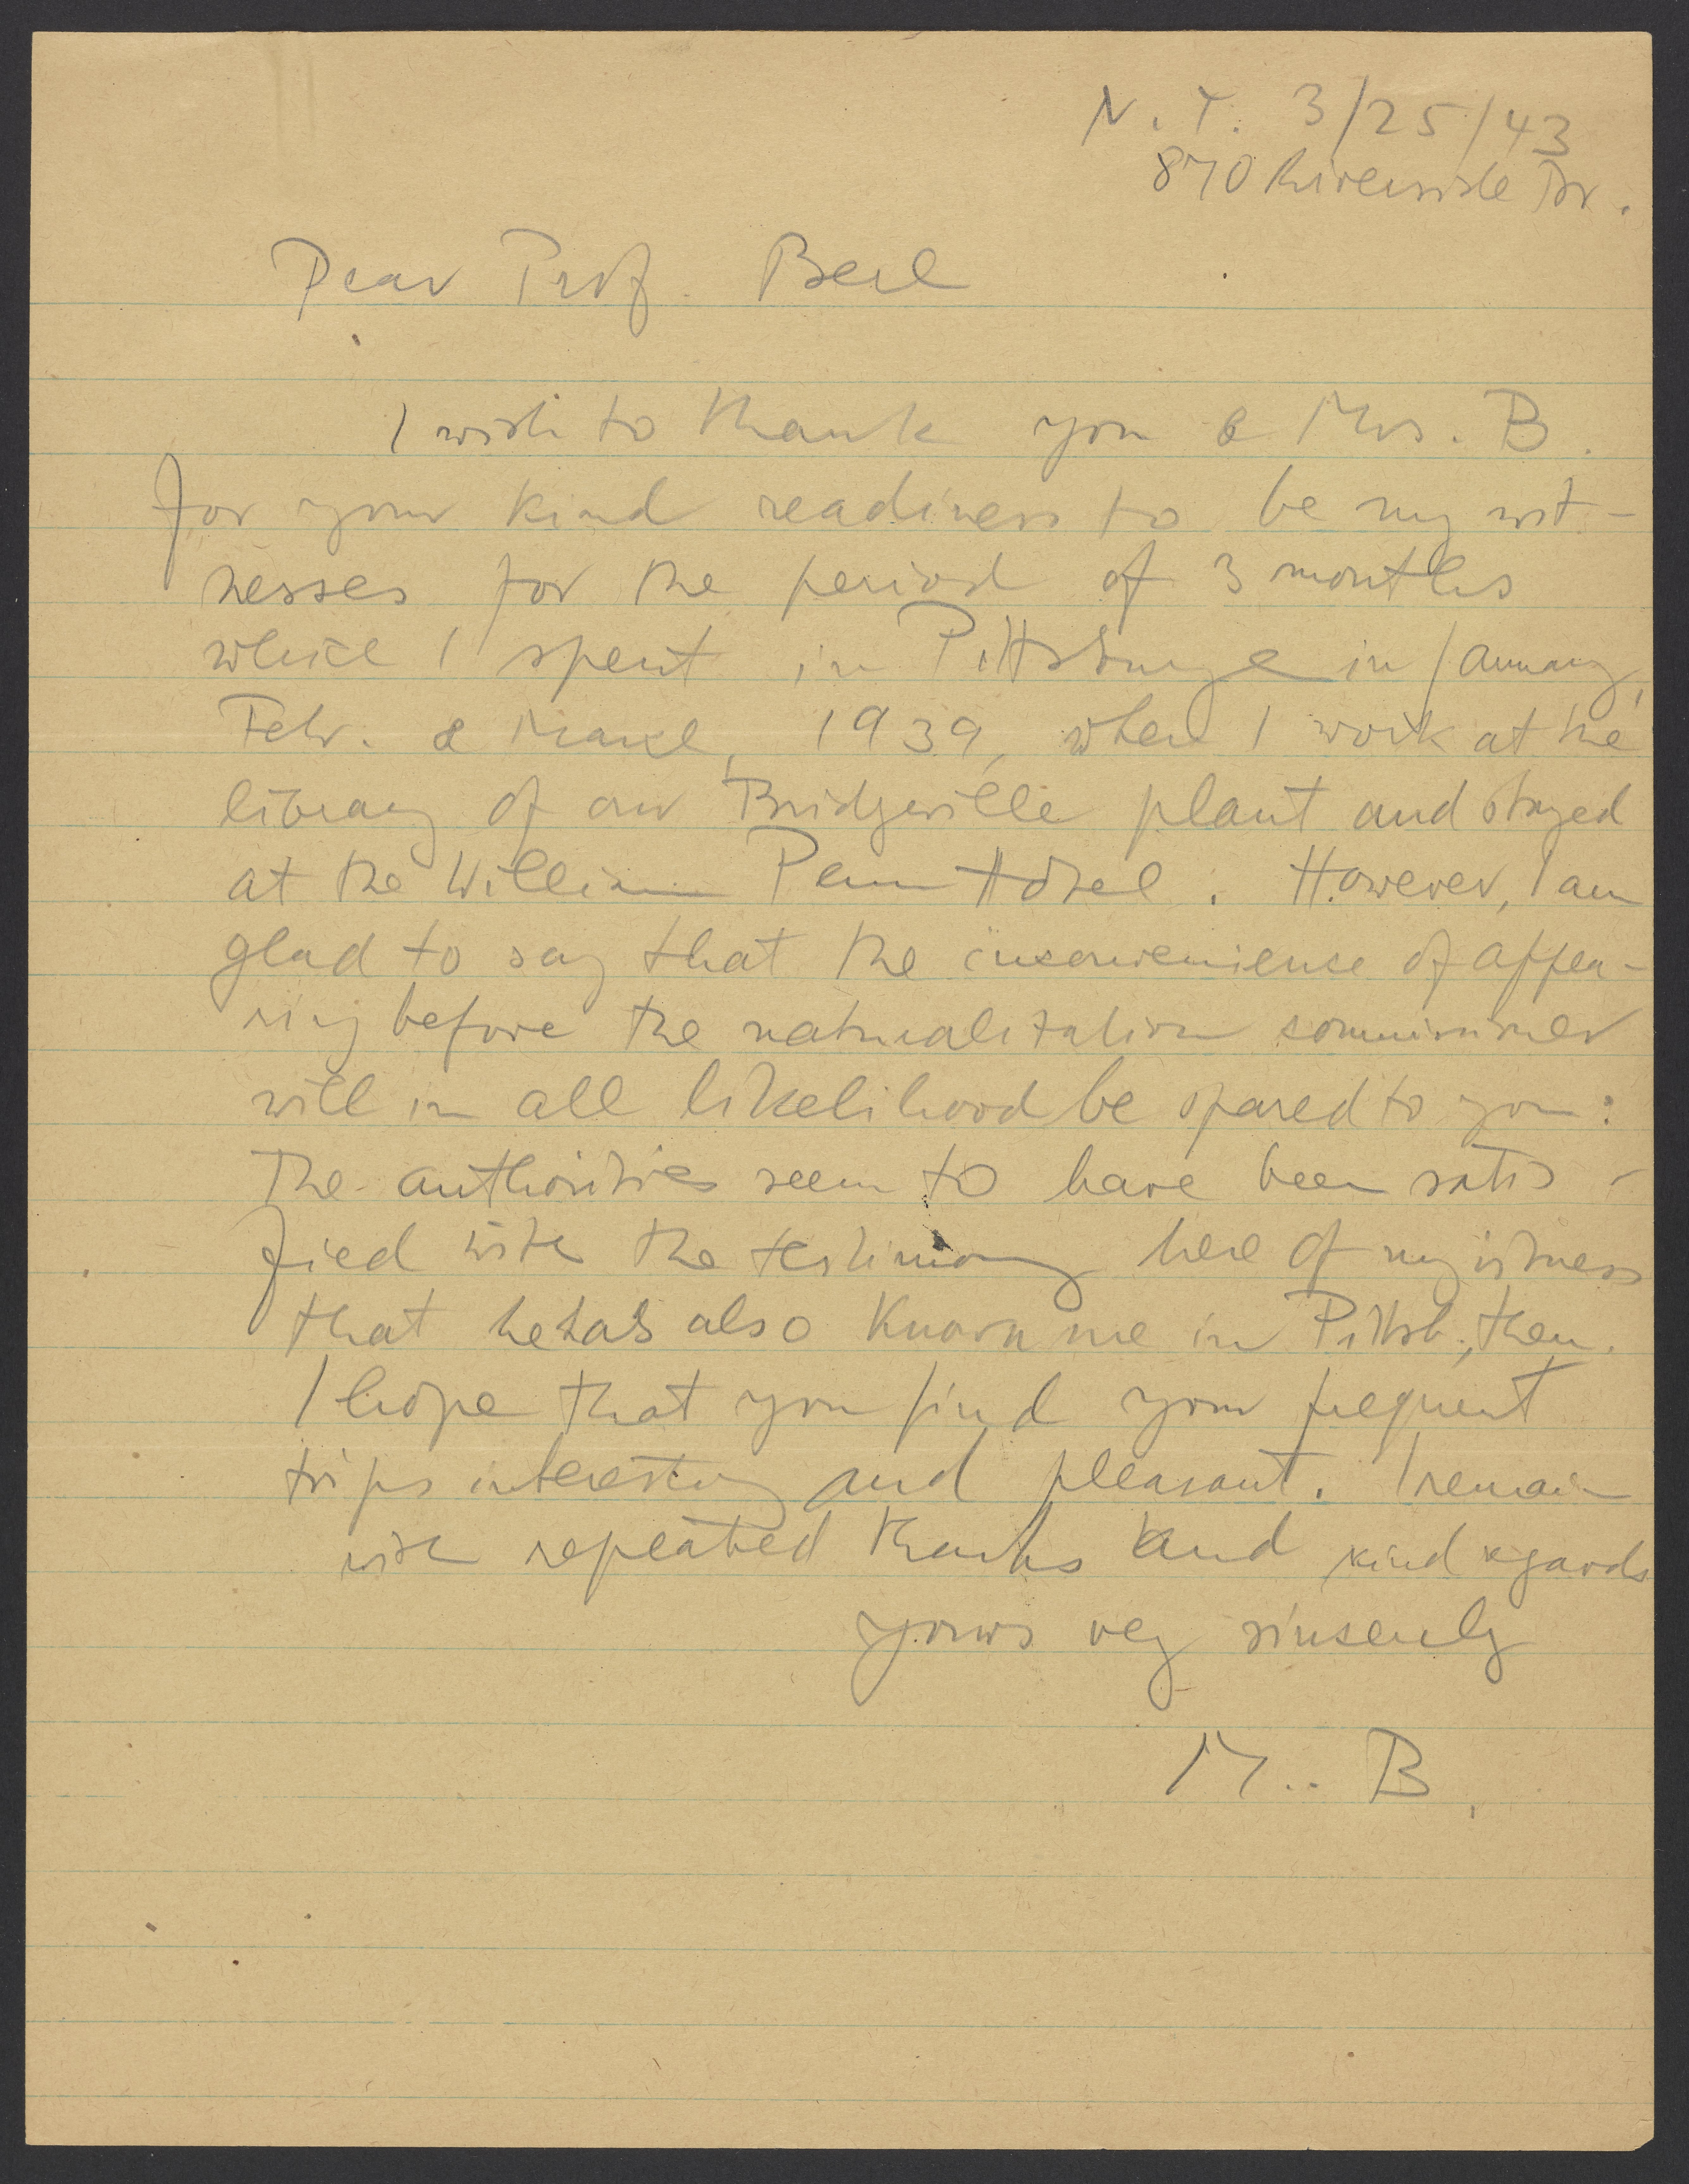 N.Y. 3/25/43
870 Riverside Dr.
Dear Prof. Berl
I wish to thank you & Mrs. B.
for your kind readiness to be my wit-
nesses for the period of 3 months
which I spent in Pittsburgh in January,
Febr. & March, 1939, when I work at the
library of our Bridgeville plant and stayed
at the William Penn Hotel. However, I am
glad to say that the inconvenience of appea-
ring before the naturalization commissioner
will in all likelihood be spared to you:
The authorities seem to have been satis-
fied with the testimony here of my witness
that he has also known me in Pittsb. then.
I hope that you find your frequent
trips interesting and pleasant. I remain
with repeated thanks and kind regards
yours very sincerely
M. B.